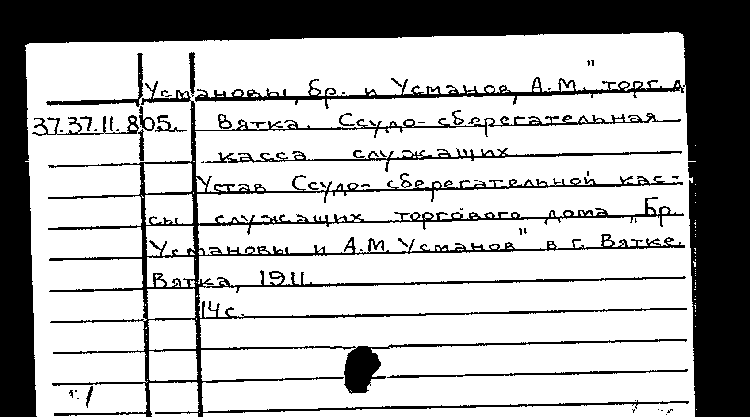 Усмановы, бр. и Усманов, А.М.", торг. д
37.37.11.805. Вятка. Ссудо-сберегательная
касса служащих
Устав Ссудо-сберегательной кас-
сы служащих торгового дома „Бр.
Усмановы и А.М. Усманов" в г. Вятке.
Вятка, 1911.
14 с.